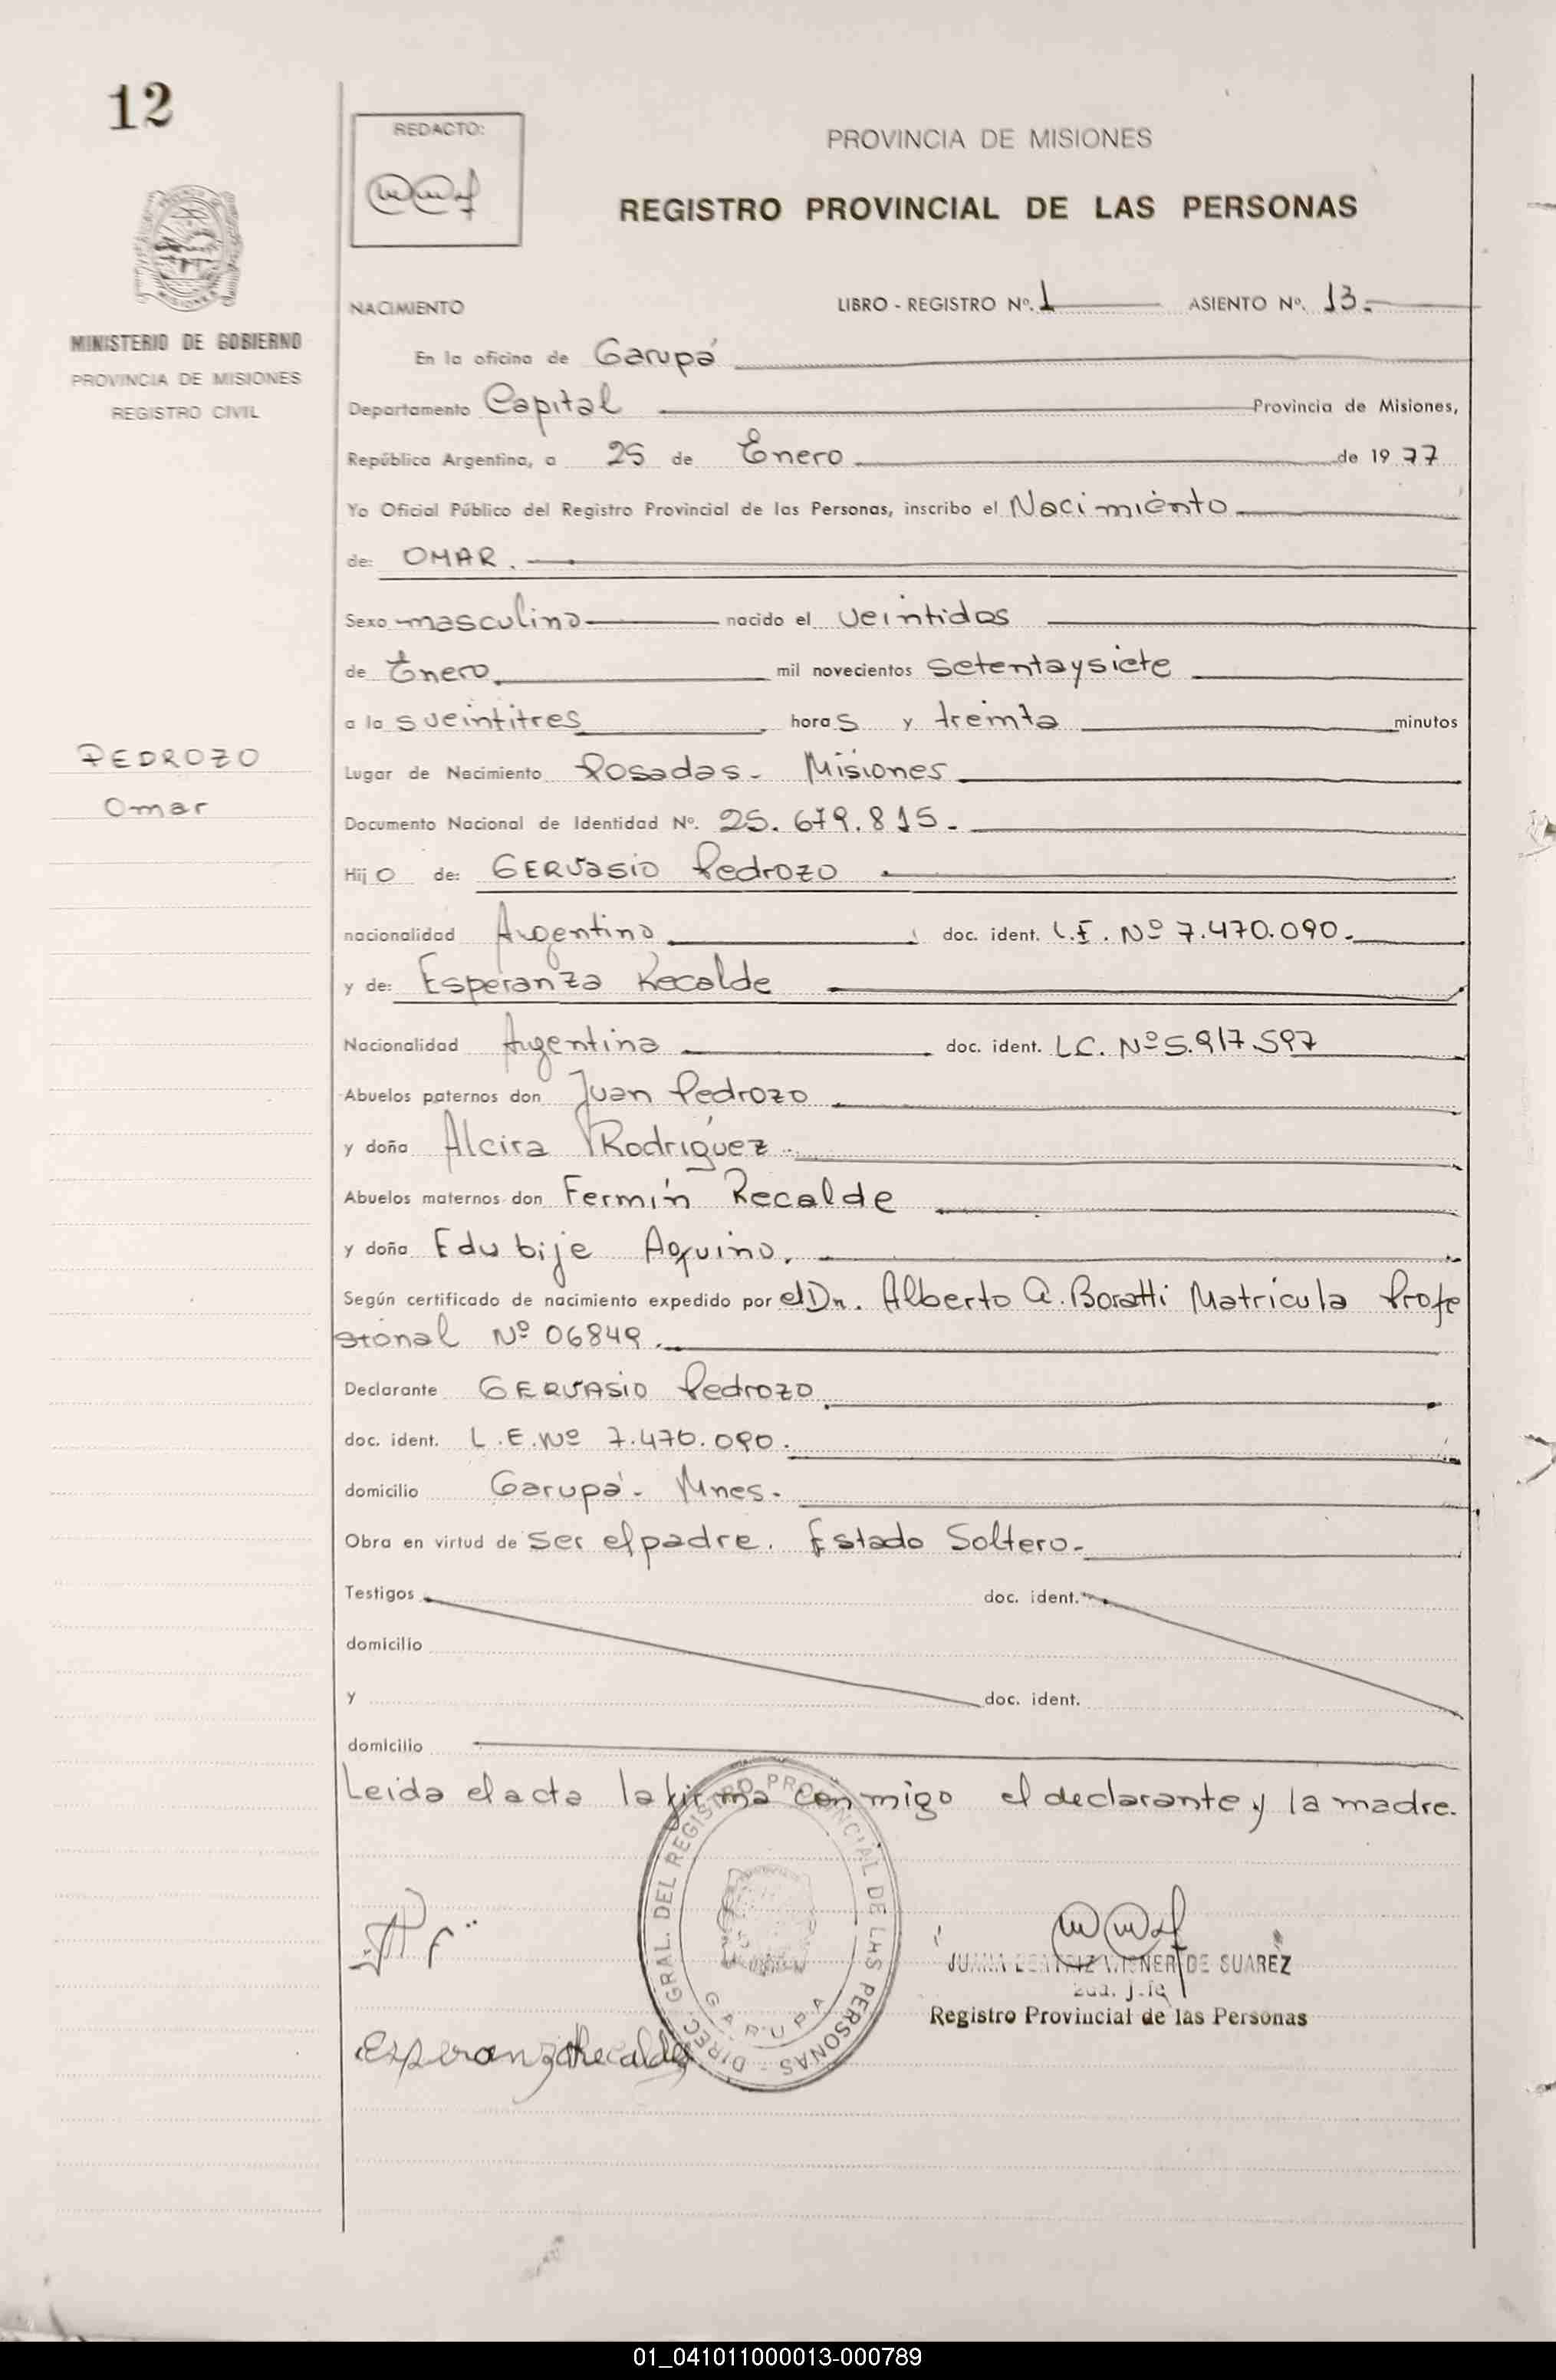 12
REDACTO:
PROVINCIA DE MISIONES
REGISTRO PROVINCIAL DE LAS PERSONAS
MINISTERIO DE GOBIERNO
PROVINCIA DE MISIONES
REGISTRO CIVIL
NACIMIENTO LIBRO - REGISTRO Nº. 1 ASIENTO Nº. 13.
En la oficina de Garupá
Departamento Capital Provincia de Misiones,
República Argentina, a 25 de Enero de 1977
Yo Oficial Público del Registro Provincial de las Personas, inscribo el Nacimiento
de: OMAR.
Sexo masculino nacido el veintidos
de Enero mil novecientos setentaysiete
a las veintitres horas y treinta minutos
PEDROZO
Omar
Lugar de Nacimiento Posadas - Misiones
Documento Nacional de Identidad Nº. 25.679.815.
Hijo de: GERVASIO Pedrozo
nacionalidad Argentino doc. ident. L.E. Nº 7.470.090.
y de: Esperanza Recalde
Nacionalidad Argentina doc. ident. L.C. Nº 5.917.597
Abuelos paternos don Juan Pedrozo
y doña Alcira Rodríguez
Abuelos maternos don Fermín Recalde
y doña Edubije Aquino.
Según certificado de nacimiento expedido por el Dr. Alberto A. Boratti Matrícula Profe
sional Nº 06849.
Declarante GERVASIO Pedrozo
doc. ident. L.E. Nº 7.470.090.
domicilio Garupá - Mnes.
Obra en virtud de ser el padre. Estado Soltero.
Testigos doc. ident.
domicilio
y doc. ident.
domicilio
Leida el acta la firma conmigo el declarante y la madre.
DIREC. GRAL. DEL REGISTRO PROVINCIAL DE LAS PERSONAS - GARUPA
DE SUAREZ
Registro Provincial de las Personas
Esperanza Recalde
01_041011000013-000789